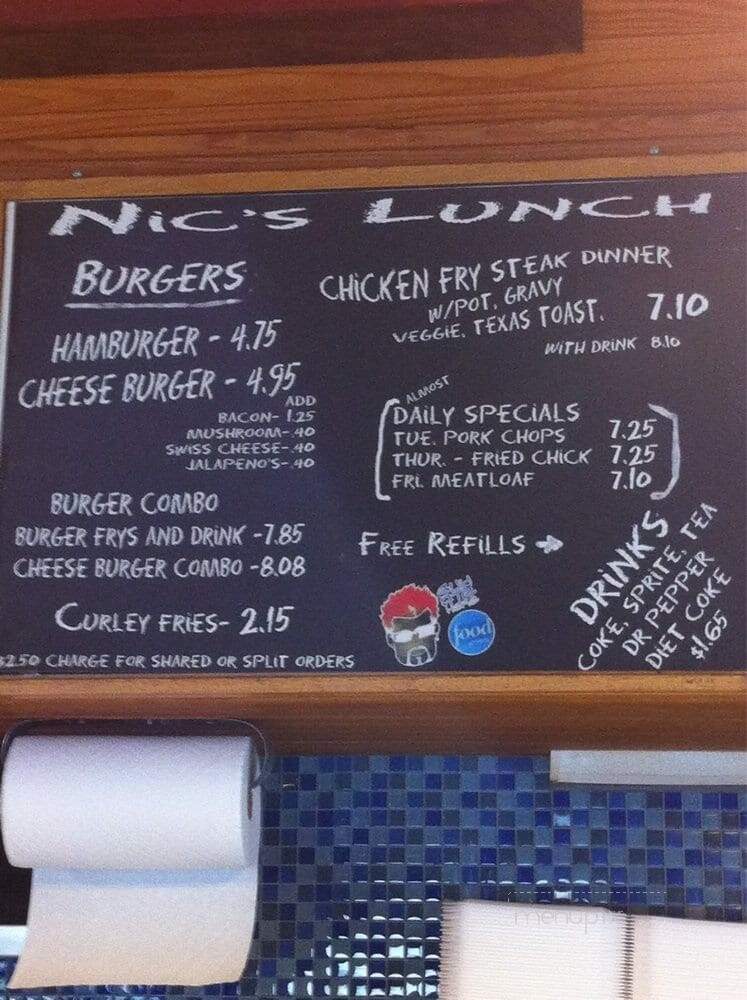 NIC'S LUNCH
BURGERS
HAMBURGER - 4.75
CHEESE BURGER - 4.95
ADD
BACON- 1.25
MUSHROOM-.40
SWISS CHEESE-.40
JALAPENO'S-.40
BURGER COMBO
BURGER FRYS AND DRINK -7.85
CHEESE BURGER COMBO -8.08
CURLEY FRIES- 2.15
$2.50 CHARGE FOR SHARED OR SPLIT ORDERS
CHICKEN FRY STEAK DINNER
W/POT, GRAVY
VEGGIE, TEXAS TOAST. 7.10
WITH DRINK 8.10
ALMOST
DAILY SPECIALS
TUE. PORK CHOPS 7.25
THUR. - FRIED CHICK 7.25
FRI. MEATLOAF 7.10
FREE REFILLS →
DRINKS
COKE, SPRITE, TEA
DR PEPPER
DIET COKE
$1.65
food